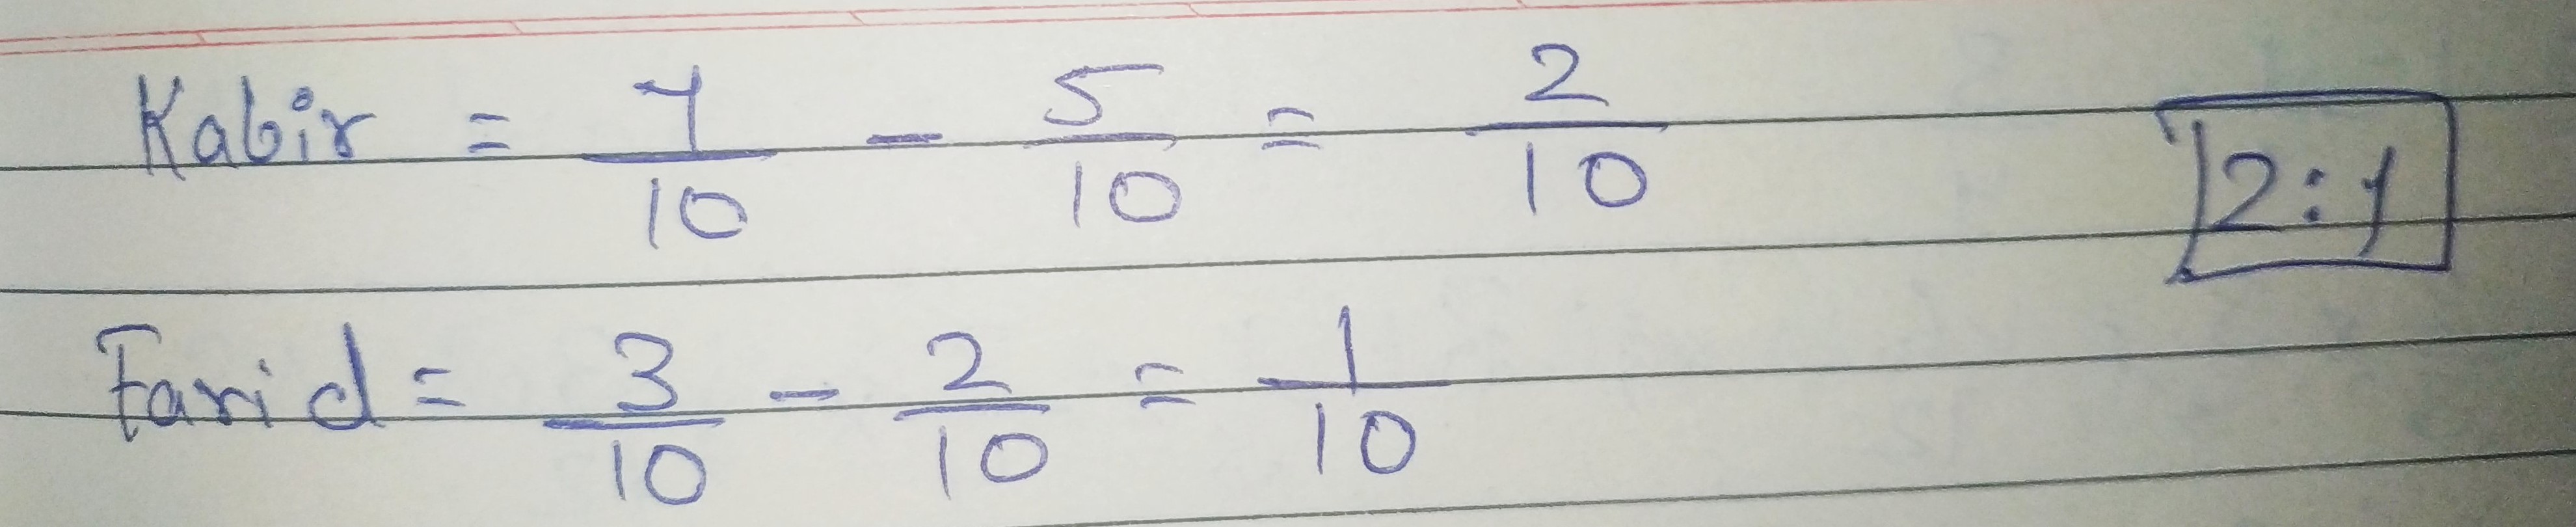 Kabir = 7/10 - 5/10 = 2/10
2:1
Farid = 3/10 - 2/10 = 1/10